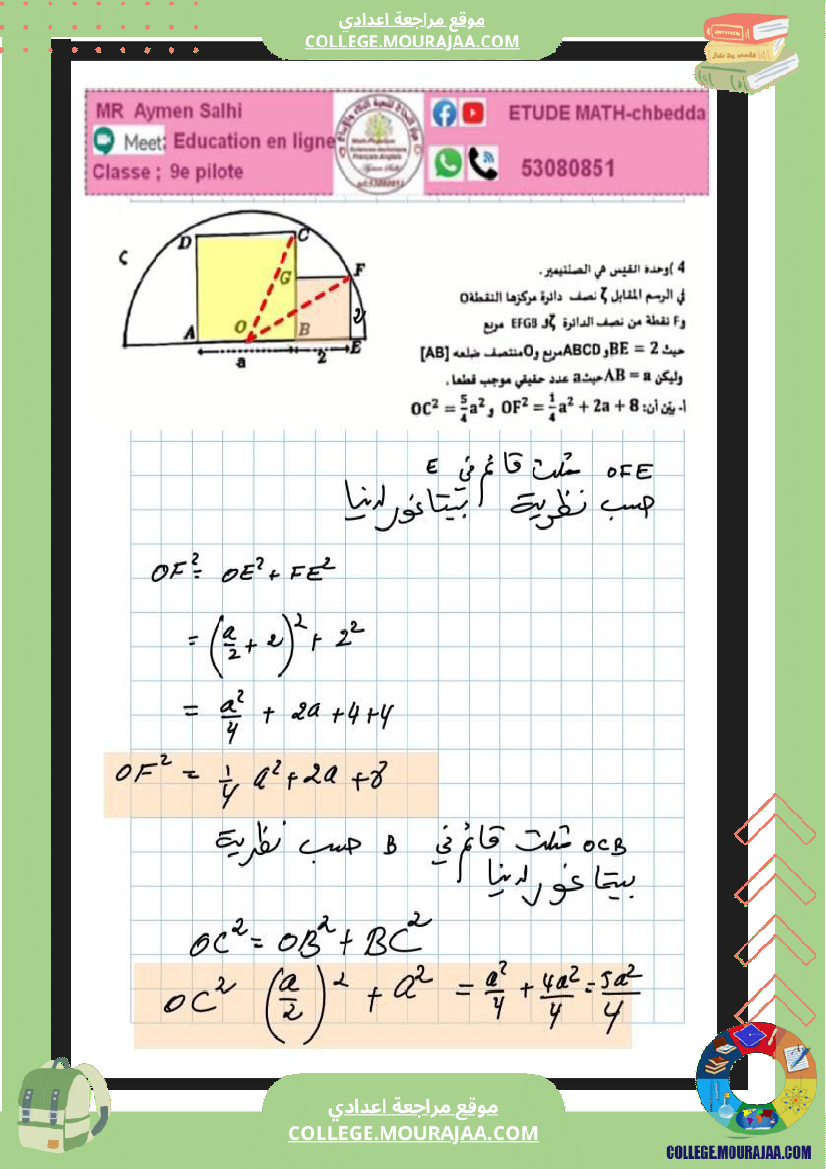 موقع مراجعة اعدادي
COLLEGE.MOURAJAA.COM
MR Aymen Salhi
Meet: Education en ligne
Classe ; 9e pilote
ETUDE MATH-chbedda
53080851
4 )وحدة القيس هي الصنتيمتر .
في الرسم المقابل ζ نصف دائرة مركزها النقطةO
وF نقطة من نصف الدائرة ζ و EFGB مربع
حيث BE = 2 و ABCD مربع وO منتصف ضلعه [AB]
وليكن AB = a حيث a عدد حقيقي موجب قطعا .
أ- بيّن أن: OF² = 1/4 a² + 2a + 8 و OC² = 5/4 a²
D C G F A O B E
a 2 2
OFE مثلث قائم في E
حسب نظرية بيتاغور لدينا
OF² = OE² + FE²
= (a/2 + 2)² + 2²
= a²/4 + 2a + 4 + 4
OF² = 1/4 a² + 2a + 8
OCB مثلث قائم في B حسب نظرية
بيتاغور لدينا
OC² = OB² + BC²
OC² (a/2)² + a² = a²/4 + 4a²/4 = 5a²/4
موقع مراجعة اعدادي
COLLEGE.MOURAJAA.COM
COLLEGE.MOURAJAA.COM